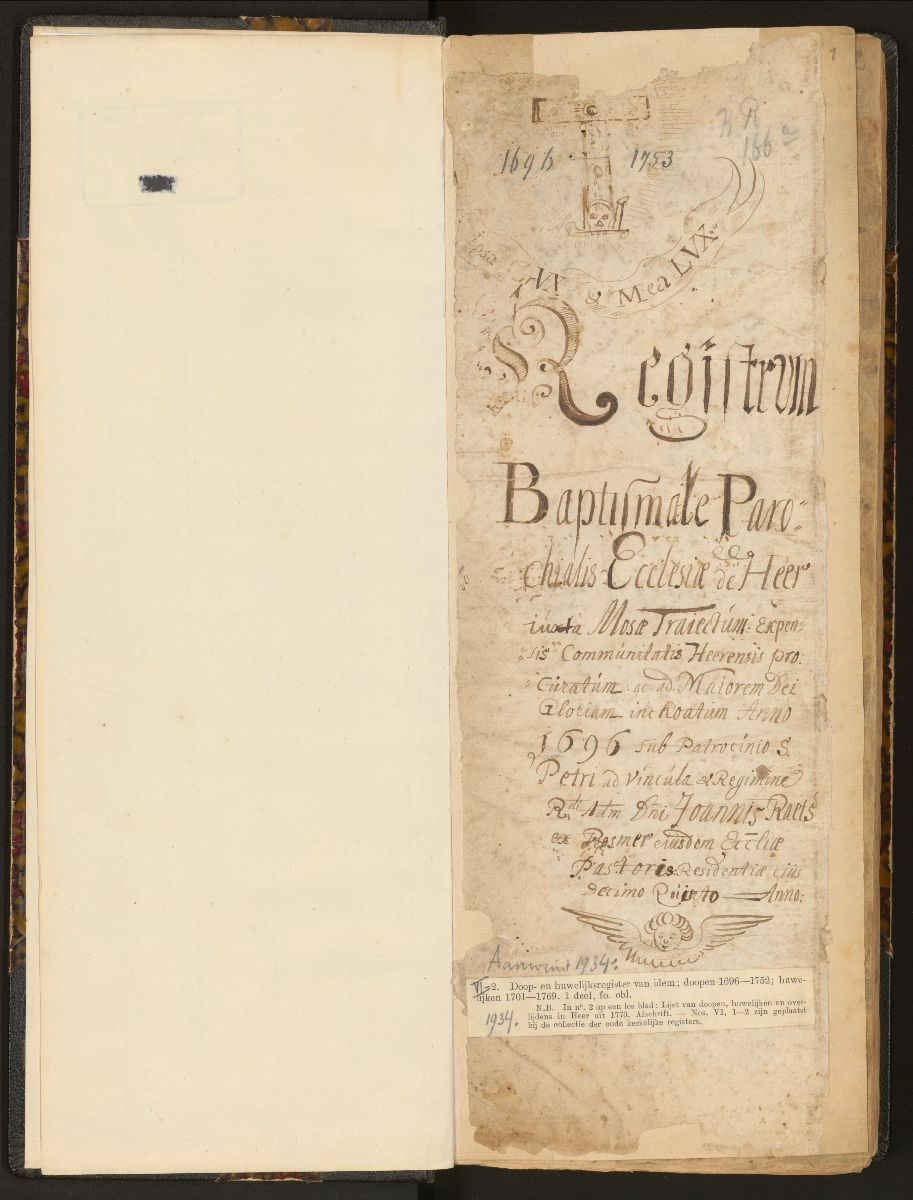 1
K R
166 a
1696 1753
Ipsa CrVX & Mea LVX
Regiſtrvm
Baptiſmale Paro-
chialis Ecclesiæ de Heer
iuxta Mosæ Traiectúm Expen-
sis Commúnitatis Heerensis pro
cúratúm ac ad Maiorem Dei
Gloriam inchoatum Anno
1696 súb Patrocinio S.
Petri ad vincúla & Regimine
R.di Adm Dni Joannis Raets
ex Rosmer eiusdem Eccliæ
Pastoris Residentiæ eiús
decimo Quinto Anno.
Aanwinst 1934.
VI-2. Doop- en huwelijksregister van idem; doopen 1696—1752; huwe-
lijken 1701—1769. 1 deel, fo. obl.
N.B. In nº. 2 op een los blad: Lijst van doopen, huwelijken en over-
lijdens in Heer uit 1770. Afschrift. — Nos. VI, 1—2 zijn geplaatst
bij de collectie der oude kerkelijke registers.
1934.